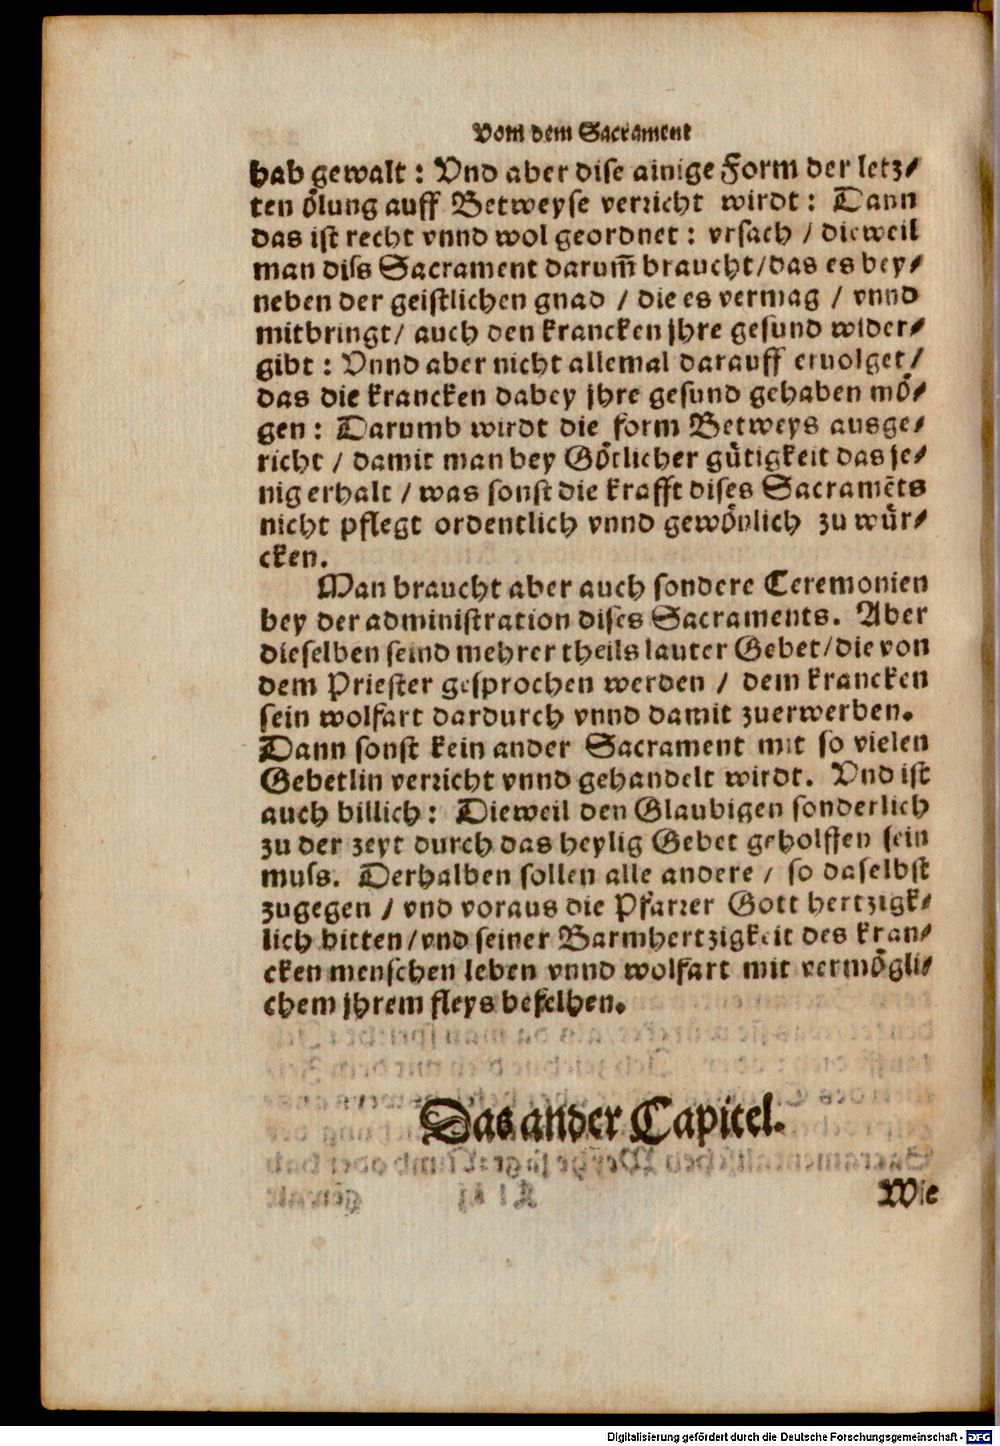 Vom dem Sacrament
hab gewalt : Vnd aber dise ainige Form der letz⸗
ten ölung auff Betweyse verricht wirdt : Dann
das ist recht vnnd wol geordnet : vrsach / dieweil
man diss Sacrament darum̃ braucht / das es bey⸗
neben der geistlichen gnad / die es vermag / vnnd
mitbringt / auch den krancken jhre gesund wider⸗
gibt : Vnnd aber nicht allemal darauff eruolget /
das die krancken dabey jhre gesund gehaben mö⸗
gen : Darumb wirdt die form Betweys ausge⸗
richt / damit man bey Götlicher gütigkeit das je⸗
nig erhalt / was sonst die krafft dises Sacramẽts
nicht pflegt ordentlich vnnd gewönlich zu wür⸗
cken.
Man braucht aber auch sondere Ceremonien
bey der administration dises Sacraments. Aber
dieselben seind mehrer theils lauter Gebet / die von
dem Priester gesprochen werden / dem krancken
sein wolfart dardurch vnnd damit zuerwerben.
Dann sonst kein ander Sacrament mit so vielen
Gebetlin verricht vnnd gehandelt wirdt. Vnd ist
auch billich : Dieweil den Glaubigen sonderlich
zu der zeyt durch das heylig Gebet geholffen sein
muss. Derhalben sollen alle andere / so daselbst
zugegen / vnd voraus die Pfarrer Gott hertzigk⸗
lich bitten / vnd seiner Barmhertzigkeit des kran⸗
cken menschen leben vnnd wolfart mit vermögli⸗
chem jhrem fleys befelhen.
Das ander Capitel.
Wie
Digitalisierung gefördert durch die Deutsche Forschungsgemeinschaft - DFG